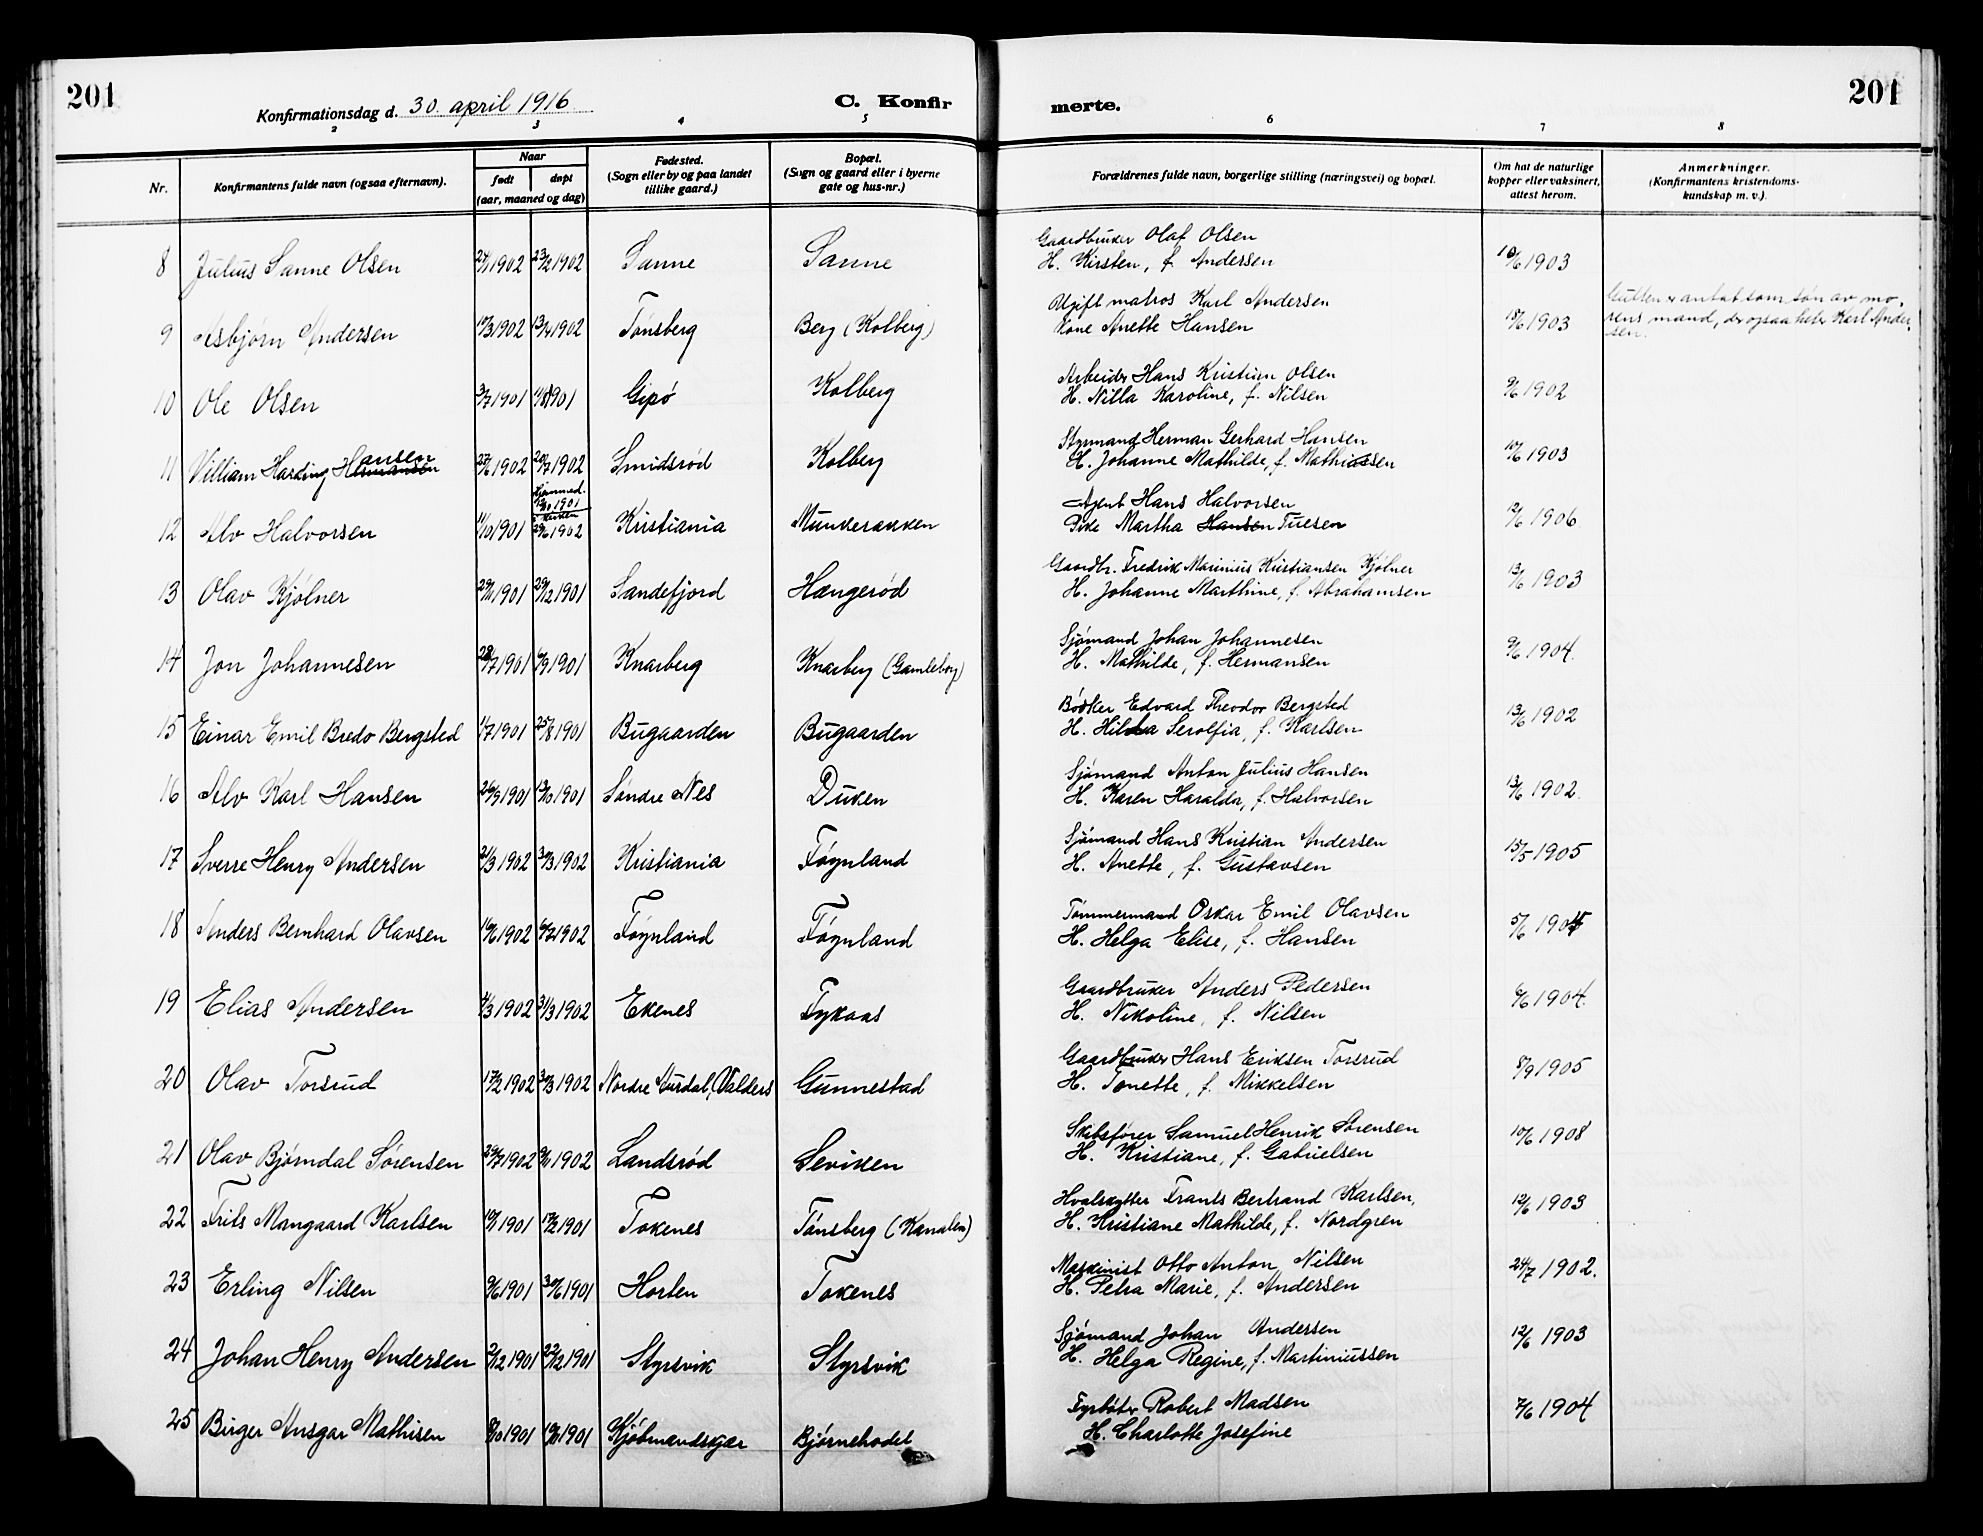 201
Konfirmationsdag d. 30. april 1916
C. Konfir
merte.
201
2 3 4 5 6 7 8
Nr.
Konfirmantens fulde navn (ogsaa efternavn).
Naar
født døpt
(aar, maaned og dag)
Fødested.
(Sogn eller by og paa landet
tillike gaard.)
Bopæl.
(Sogn og gaard eller i byerne
gate og hus-nr.)
Forældrenes fulde navn, borgerlige stilling (næringsvei) og bopæl.
Om hat de naturlige
kopper eller vaksinert,
attest herom.
Anmerkninger.
(Konfirmantens kristendoms-
kundskap m. v.).
Gaardbruker Olaf Olsen
8 Julius Sanne Olsen 24/1 1902 23/2 1902 Sanne Sanne H. Kirsten, f. Andersen 10/6 1903
Ugift matros Karl Andersen
9 Asbjørn Andersen 17/3 1902 13/4 1902 Tønsberg Berg (Kolberg) Kone Anette Hansen 15/6 1903
Gutten er antat som søn av mo-
rens mand, der ogsaa heter Karl Ander-
sen.
Arbeider Hans Kristian Olsen
10 Ole Olsen 3/7 1901 1901 Gipø Kolberg H. Nilla Karoline, f. Nilsen 9/6 1902
Styrmand Herman Gerhard Hansen
11 Villiam Harding Hansen Hermansen 27/6 1902 20/7 1902 Smidsrød Kolberg H. Johanne Mathilde, f. Mathiassen 10/6 1903
hjemmed.
1901
Agent Hans Halvorsen
12 Alv Halvorsen 11/10 1901 29/6 1902 Kristiania Munkerekken Pike Martha Hansen Tuesen 12/6 1906
Gaardbr. Fredrik Marinius Kristiansen Kjølner
13 Olav Kjølner 29/11 1901 29/12 1901 Sandefjord Hængerød H. Johanne Marthine, f. Abrahamsen 13/6 1903
Sjømand Johan Johannesen
14 Jon Johannesen 28/7 1901 /9 1901 Knarberg Knarberg (Gamleborg) H. Mathilde, f. Hermansen 9/6 1904.
Bødker Edvard Theodor Bergsted
15 Einar Emil Bredo Bergsted 11/7 1901 25/8 1901 Bugaarden Bugaarden H. Hilda Serolfia, f. Karlsen 13/6 1902
Sjømand Anton Julius Hansen
16 Alv Karl Hansen 26/9 1901 13/10 1901 Søndre Nes Duken H. Karen Haralda, f. Halvorsen 13/6 1902.
Sjømand Hans Kristian Andersen
17 Sverre Henry Andersen 21/3 1902 30/3 1902 Kristiania Føynland H. Anette, f. Gustavsen 15/5 1905
Tømmermand Oskar Emil Olavsen
18 Anders Bernhard Olavsen 16/6 1902 /7 1902 Føynland Føynland H. Helga Elise, f. Hansen 5/6
Gaardbruker Anders Pedersen
19 Elias Andersen 4/3 1902 31/3 1902 Ekenes Fykaas H. Nikoline, f. Nilsen 6/6 1904.
Gaardbruker Hans Eriksen Torsrud
20 Olav Torsrud 17/2 1902 30/3 1902 Nordre Aurdal, (Valders Gunnestad H. Tonette, f. Mikkelsen 8/9 1905
Skibsfører Samuel Henrik Sørensen
21 Olav Bjørndal Sørensen 29/7 1902 9/11 1902 Landsrød Leviken H. Kristiane, f. Gabrielsen 10/6 1908
Hvalskytter Frants Bertrand Karlsen,
22 Frits Mangaard Karlsen 1901 17/2 1901 Tokenes Tønsberg (Kanalen) H. Kristiane Mathilde, f. Nordgren 12/6 1903
Maskinist Otto Anton Nilsen
23 Erling Nilsen 9/6 1901 30/6 1901 Horten Tokenes H. Petra Marie, f. Andersen 24/7 1902.
Sjømand Johan Andersen
24 Johan Henry Andersen 2/12 1901 22/12 1901 Styrsvik Styrsvik H. Helga Regine, f. Martiniussen 12/6 1903
Fyrbøter Robert Madsen
25 Birger Ansgar Mathisen 8/10 1901 1901 Kjøbmandskjær Bjørnehodet H. Charlotte Josefine 7/6 1904